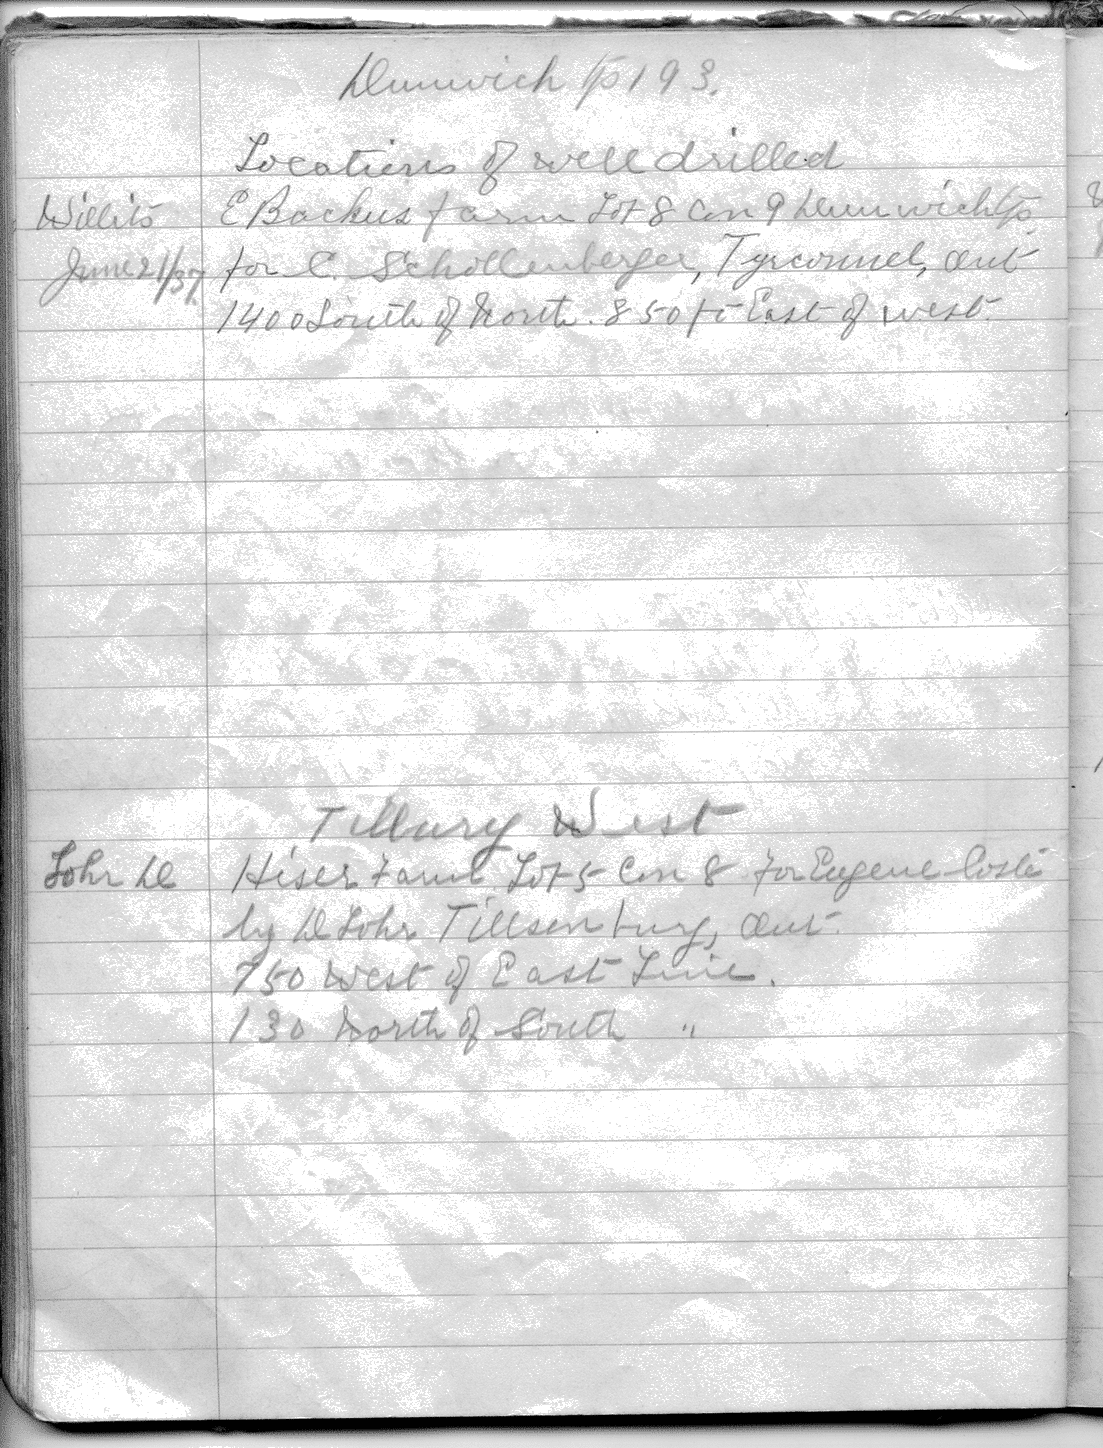 Dunwich Tp 193.
Locations of well drilled
Willits E Backus farm Lot 8 Con 9 Dunwich Tp
June 21/37 for C. Schollenberger, Tyrconnel, Ont
1400 South of North. 850 ft East of West.
Tilbury West
Lohr D Hiser Farm Lot 5 Con 8 for Eugene Coste
by D Lohr Tillsonburg, Ont.
750 West of East Line.
130 North of South "